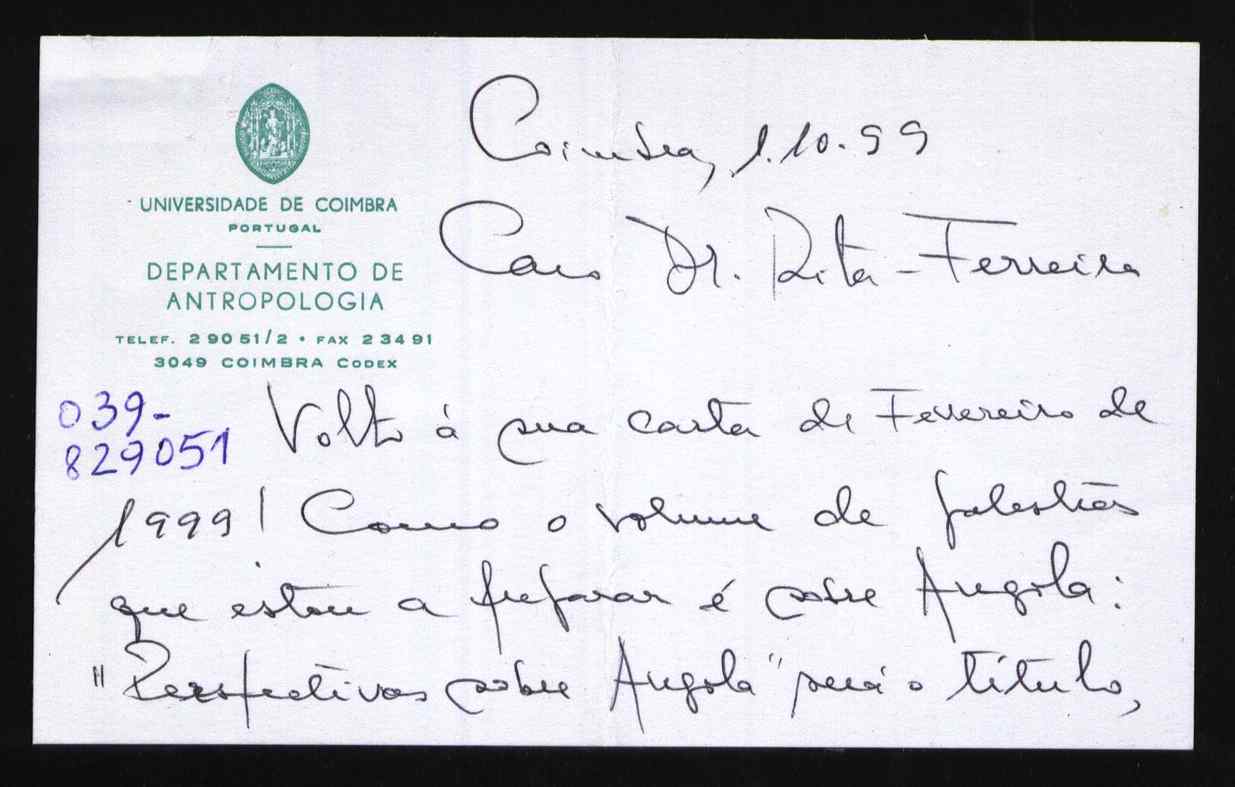 Coimbra, 1.10.99
UNIVERSIDADE DE COIMBRA
PORTUGAL
DEPARTAMENTO DE
ANTROPOLOGIA
TELEF. 29051/2 • FAX 23491
3049 COIMBRA CODEX
Caro Dr. Rita-Ferreira
039-
829051
Volto à sua carta de Fevereiro de
1999! Como o volume de palestras
que estou a preparar é sobre Angola:
"Perspectivas sobre Angola" será o título,